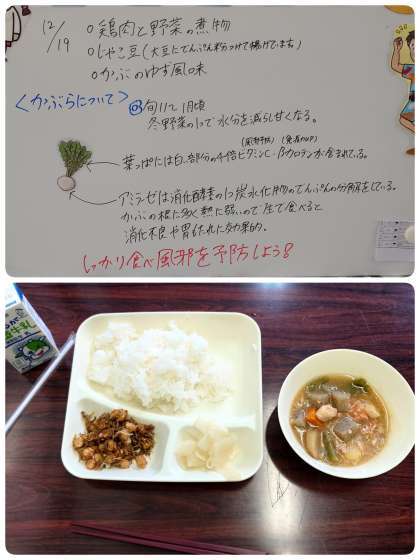 12/19
○鶏肉と野菜の煮物
○じゃこ豆(大豆にでんぷん粉つけて揚げています)
○かぶのゆず風味
<かぶらについて>
旬11〜1月頃
冬野菜の1つで水分を減らし甘くなる。
(風邪予防)
葉っぱには白い部分の4倍ビタミンC・βカロテンが含まれている。
アミラーゼは消化酵素の1つ炭水化物のでんぷんの分解をしている。
かぶの根に多く熱に弱いので生で食べると
消化不良や胃もたれに効果的。
しっかり食べ風邪を予防しよう!